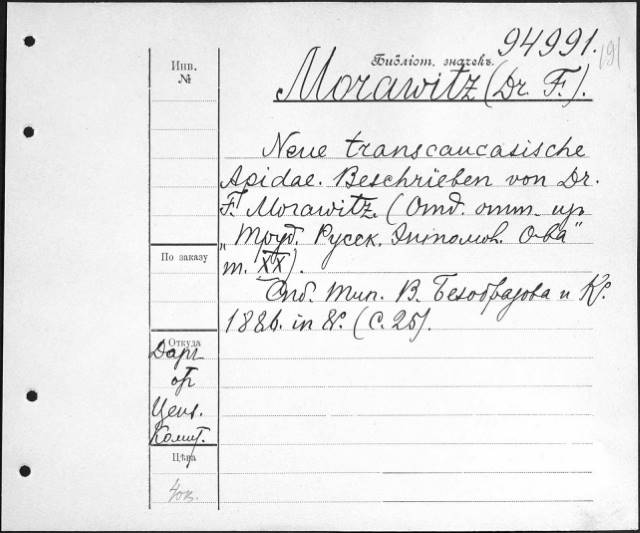 94991.
191
Инв.
№
Библіот. значекъ.
Morawitz (Dr. F.).
Neue transcaucasische
Apidae. Beschrieben von Dr.
F. Morawitz. (Отд. отт. изъ
„Труд. Русск. Энтомол. О-ва"
т. XX).
Спб. Тип. В. Безобразова и Кº.
1886. in 8º. (С. 25).
По заказу
Откуда
Даръ
отъ
Ценз.
Комит.
Цѣна